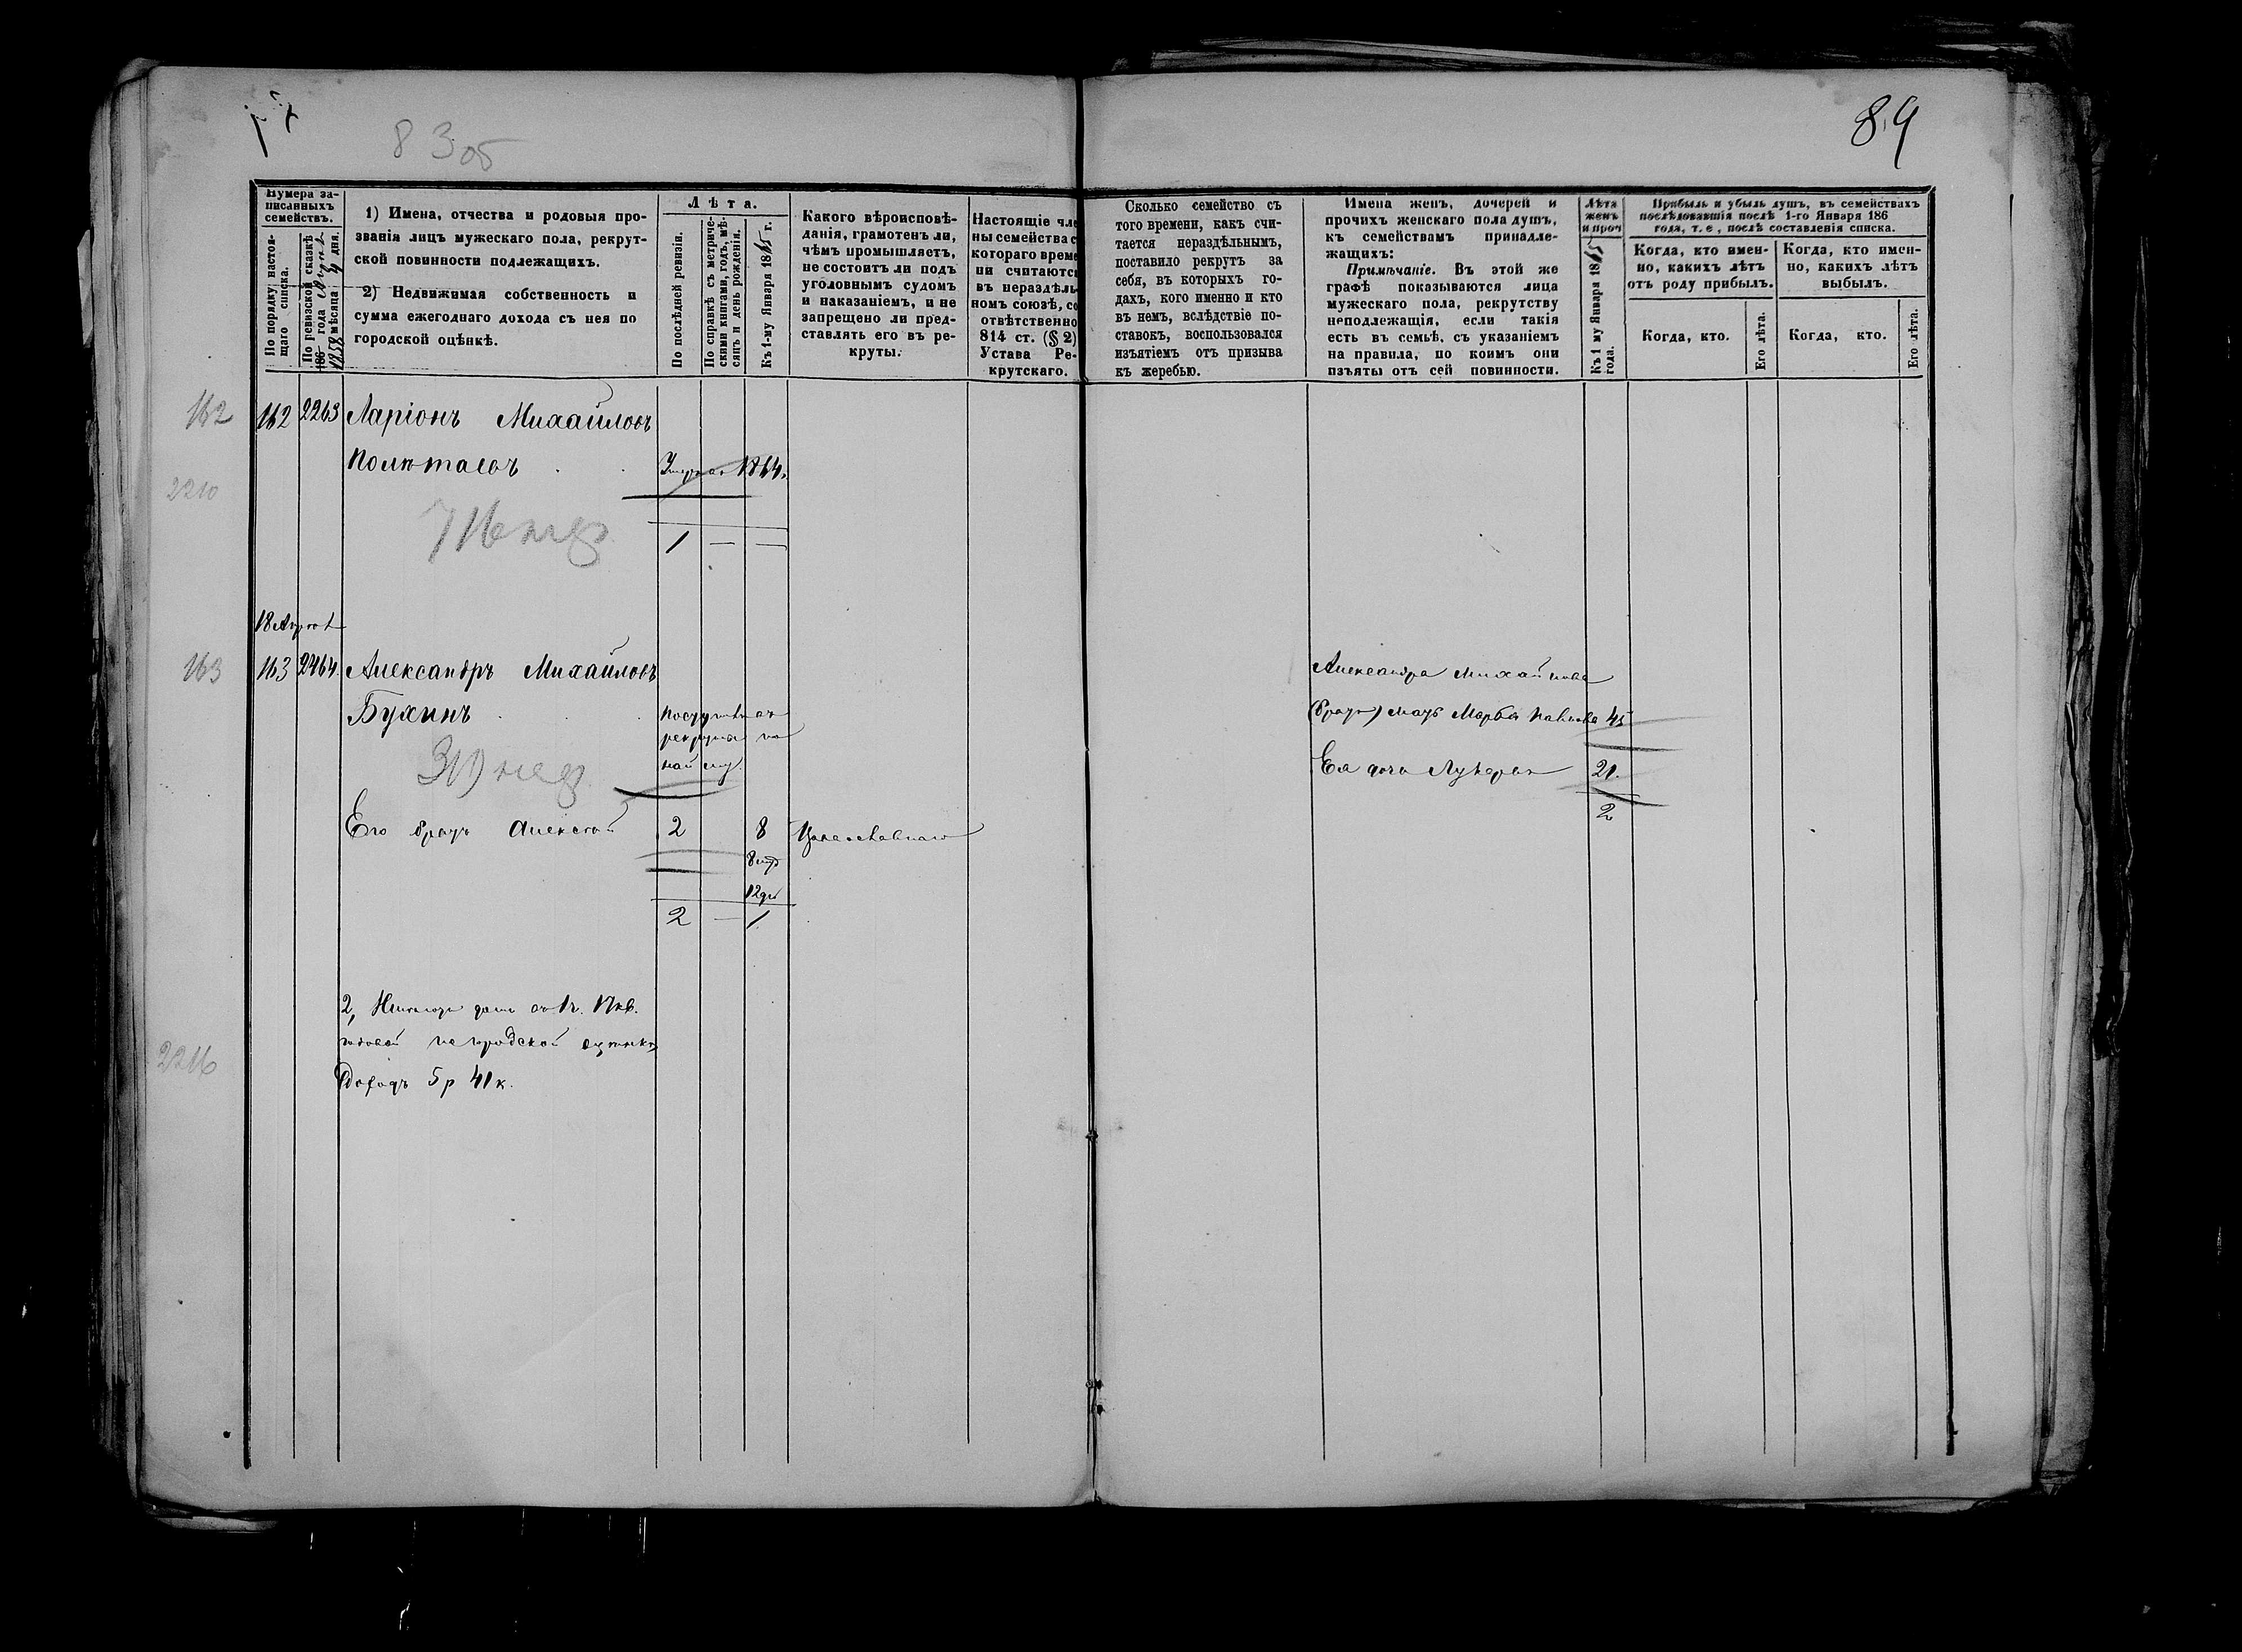 83об
84
Нумера за-
писанныхъ
семействъ.
По порядку настоя-
щаго списка.
По ревизской сказкѣ
186 года
1858 мѣсяца дня.
1) Имена, отчества и родовыя про-
званія лицъ мужескаго пола, рекрут-
ской повинности подлежащихъ.
2) Недвижимая собственность и
сумма ежегоднаго дохода съ нея по
городской оцѣнкѣ.
Лѣта.
По послѣдней ревизіи.
По справкѣ съ метриче-
скими книгами, годъ, мѣ-
сяцъ и день рожденія.
Къ 1-му Января 1865 г.
Какого вѣроисповѣ-
данія, грамотенъ ли,
чѣмъ промышляетъ,
не состоитъ ли подъ
уголовнымъ судомъ
и наказаніемъ, и не
запрещено ли пред-
ставлять его въ ре-
круты.
Настоящіе чле
ны семейства с
котораго време
ни считаются
въ нераздѣль-
номъ союзѣ, со
отвѣтственно
814 ст. (§ 2)
Устава Ре-
крутскаго.
Сколько семейство съ
того времени, какъ счи-
тается нераздѣльнымъ,
поставило рекрутъ за
себя, въ которыхъ го-
дахъ, кого именно и кто
въ немъ, вслѣдствіе по-
ставокъ, воспользовался
изъятіемъ отъ призыва
къ жеребью.
Имена женъ, дочерей и
прочихъ женскаго пола душъ,
къ семействамъ принадле-
жащихъ:
Примѣчаніе. Въ этой же
графѣ показываются лица
мужескаго пола, рекрутству
неподлежащія, если такія
есть въ семьѣ, съ указаніемъ
на правила, по коимъ они
изъяты отъ сей повинности.
Лѣта
женъ
и проч
Къ 1 му Января 1865
года.
Прибыль и убыль душъ, въ семействахъ
послѣдовавшія послѣ 1-го Января 186
года, т. е., послѣ составленія списка.
Когда, кто имен-
но, какихъ лѣтъ
отъ роду прибылъ.
Когда, кто имен-
но, какихъ лѣтъ
выбылъ.
Когда, кто.
Его лѣта.
Когда, кто.
Его лѣта.
162 162 2263 Ларіонъ Михайловъ
1864.
2210
1 — —
163 163 2464. Александръ Михайловъ
Александра Михайлова
Бухинъ
(братъ) мать Марфа Павлова 45
Ея дочь 21.
2
Его братъ Алексѣй 2 8
8
12
2 — 1
2, домъ 17 кв.
по городской оцѣнкѣ
2216
Доходъ 5 р 41 к.